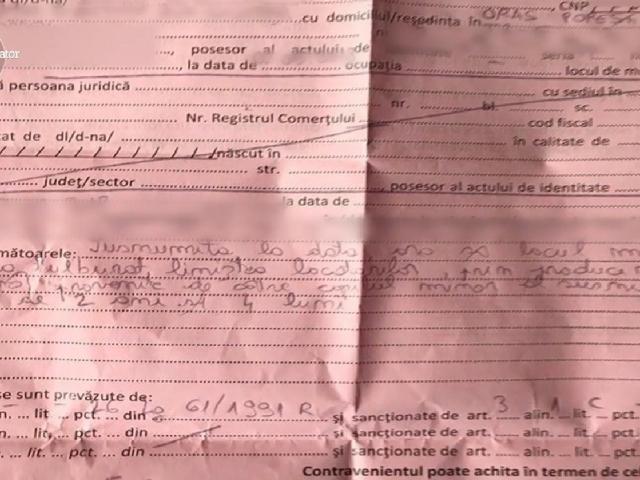 dl/d-na/
cu domiciliul/reședința în ORAȘ POPEȘ CNP
posesor al actului de
ator
la data de ocupația locul de m
persoana juridică cu sediul în
nr. bl. sc.
Nr. Registrul Comerțului cod fiscal
at de dl/d-na/ în calitate de
născut în
str.
județ/sector posesor al actului de identitate
la data de
mătoarele: Susnumita la data ora și locul m
tulburat liniștea locatarilor, prin produce
provenic de către copilul minor al susnu
de 2 ani și 4 luni
se sunt prevăzute de:
n. ... lit ... pct. ... din 61/1991 R și sancționate de art. 3 alin. 1 lit. C pct.
n. ... lit. ... pct. ... din și sancționate de art. alin. lit. pct.
. ... lit. ... pct. ... din și sancționate de art. alin. lit. pct.
Contravenientul poate achita în termen de cel